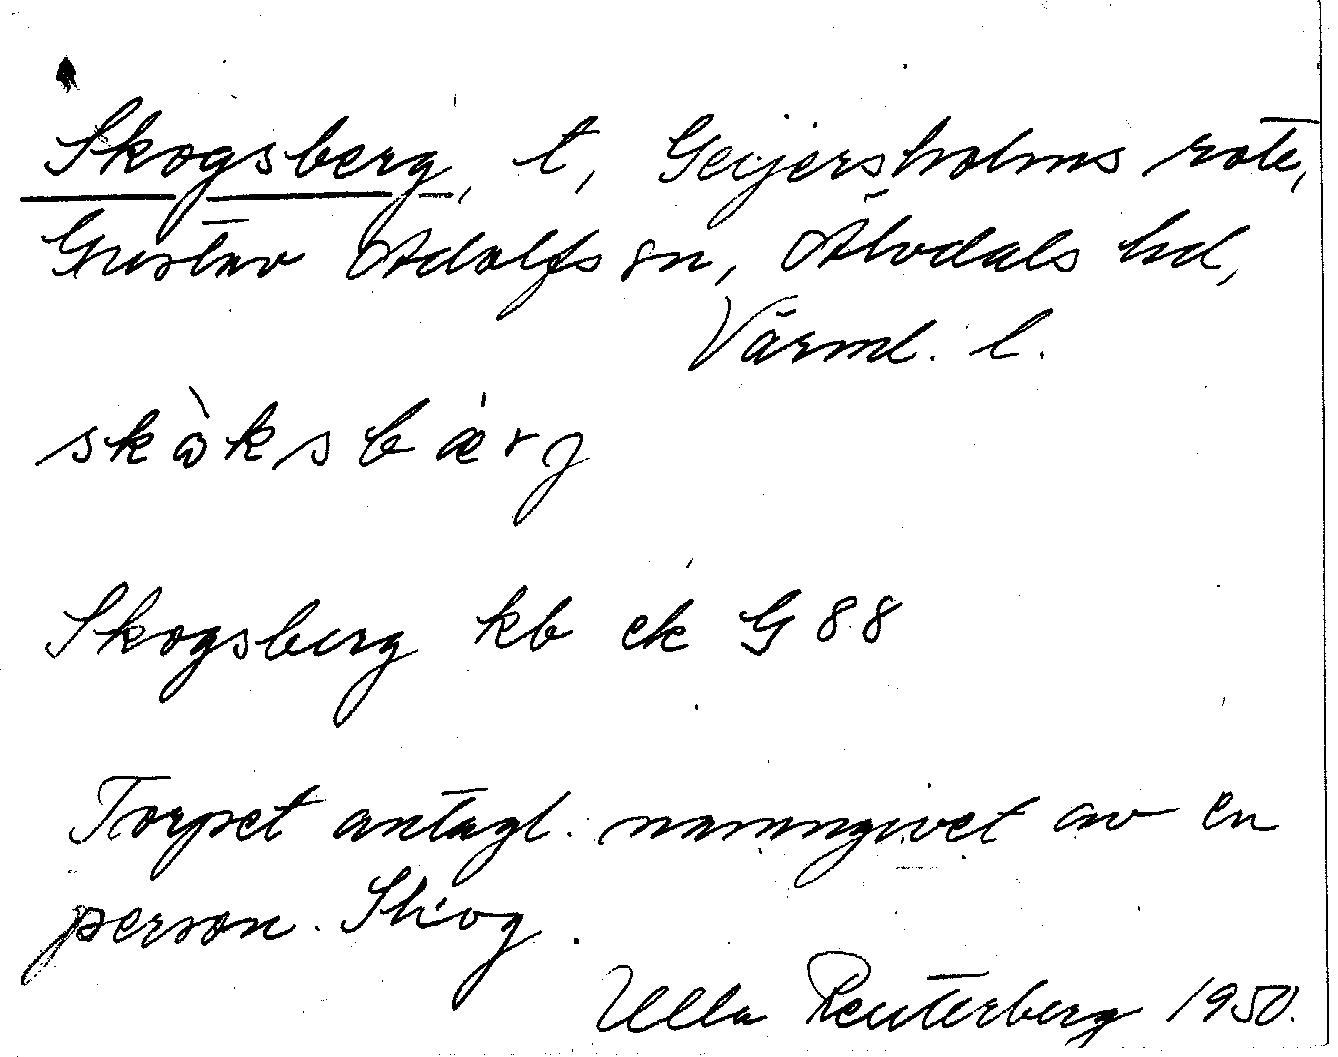 Skogsberg, t, Geijersholms rote,
Gustav Adolfs sn, Älvdals hd,
Värml. l.
skɷ̀ksbæ̀rj
Skogsberg kb ek G 88
Torpet antagl. namngivet av en
person. Skog.
Ulla Reuterberg 1950.